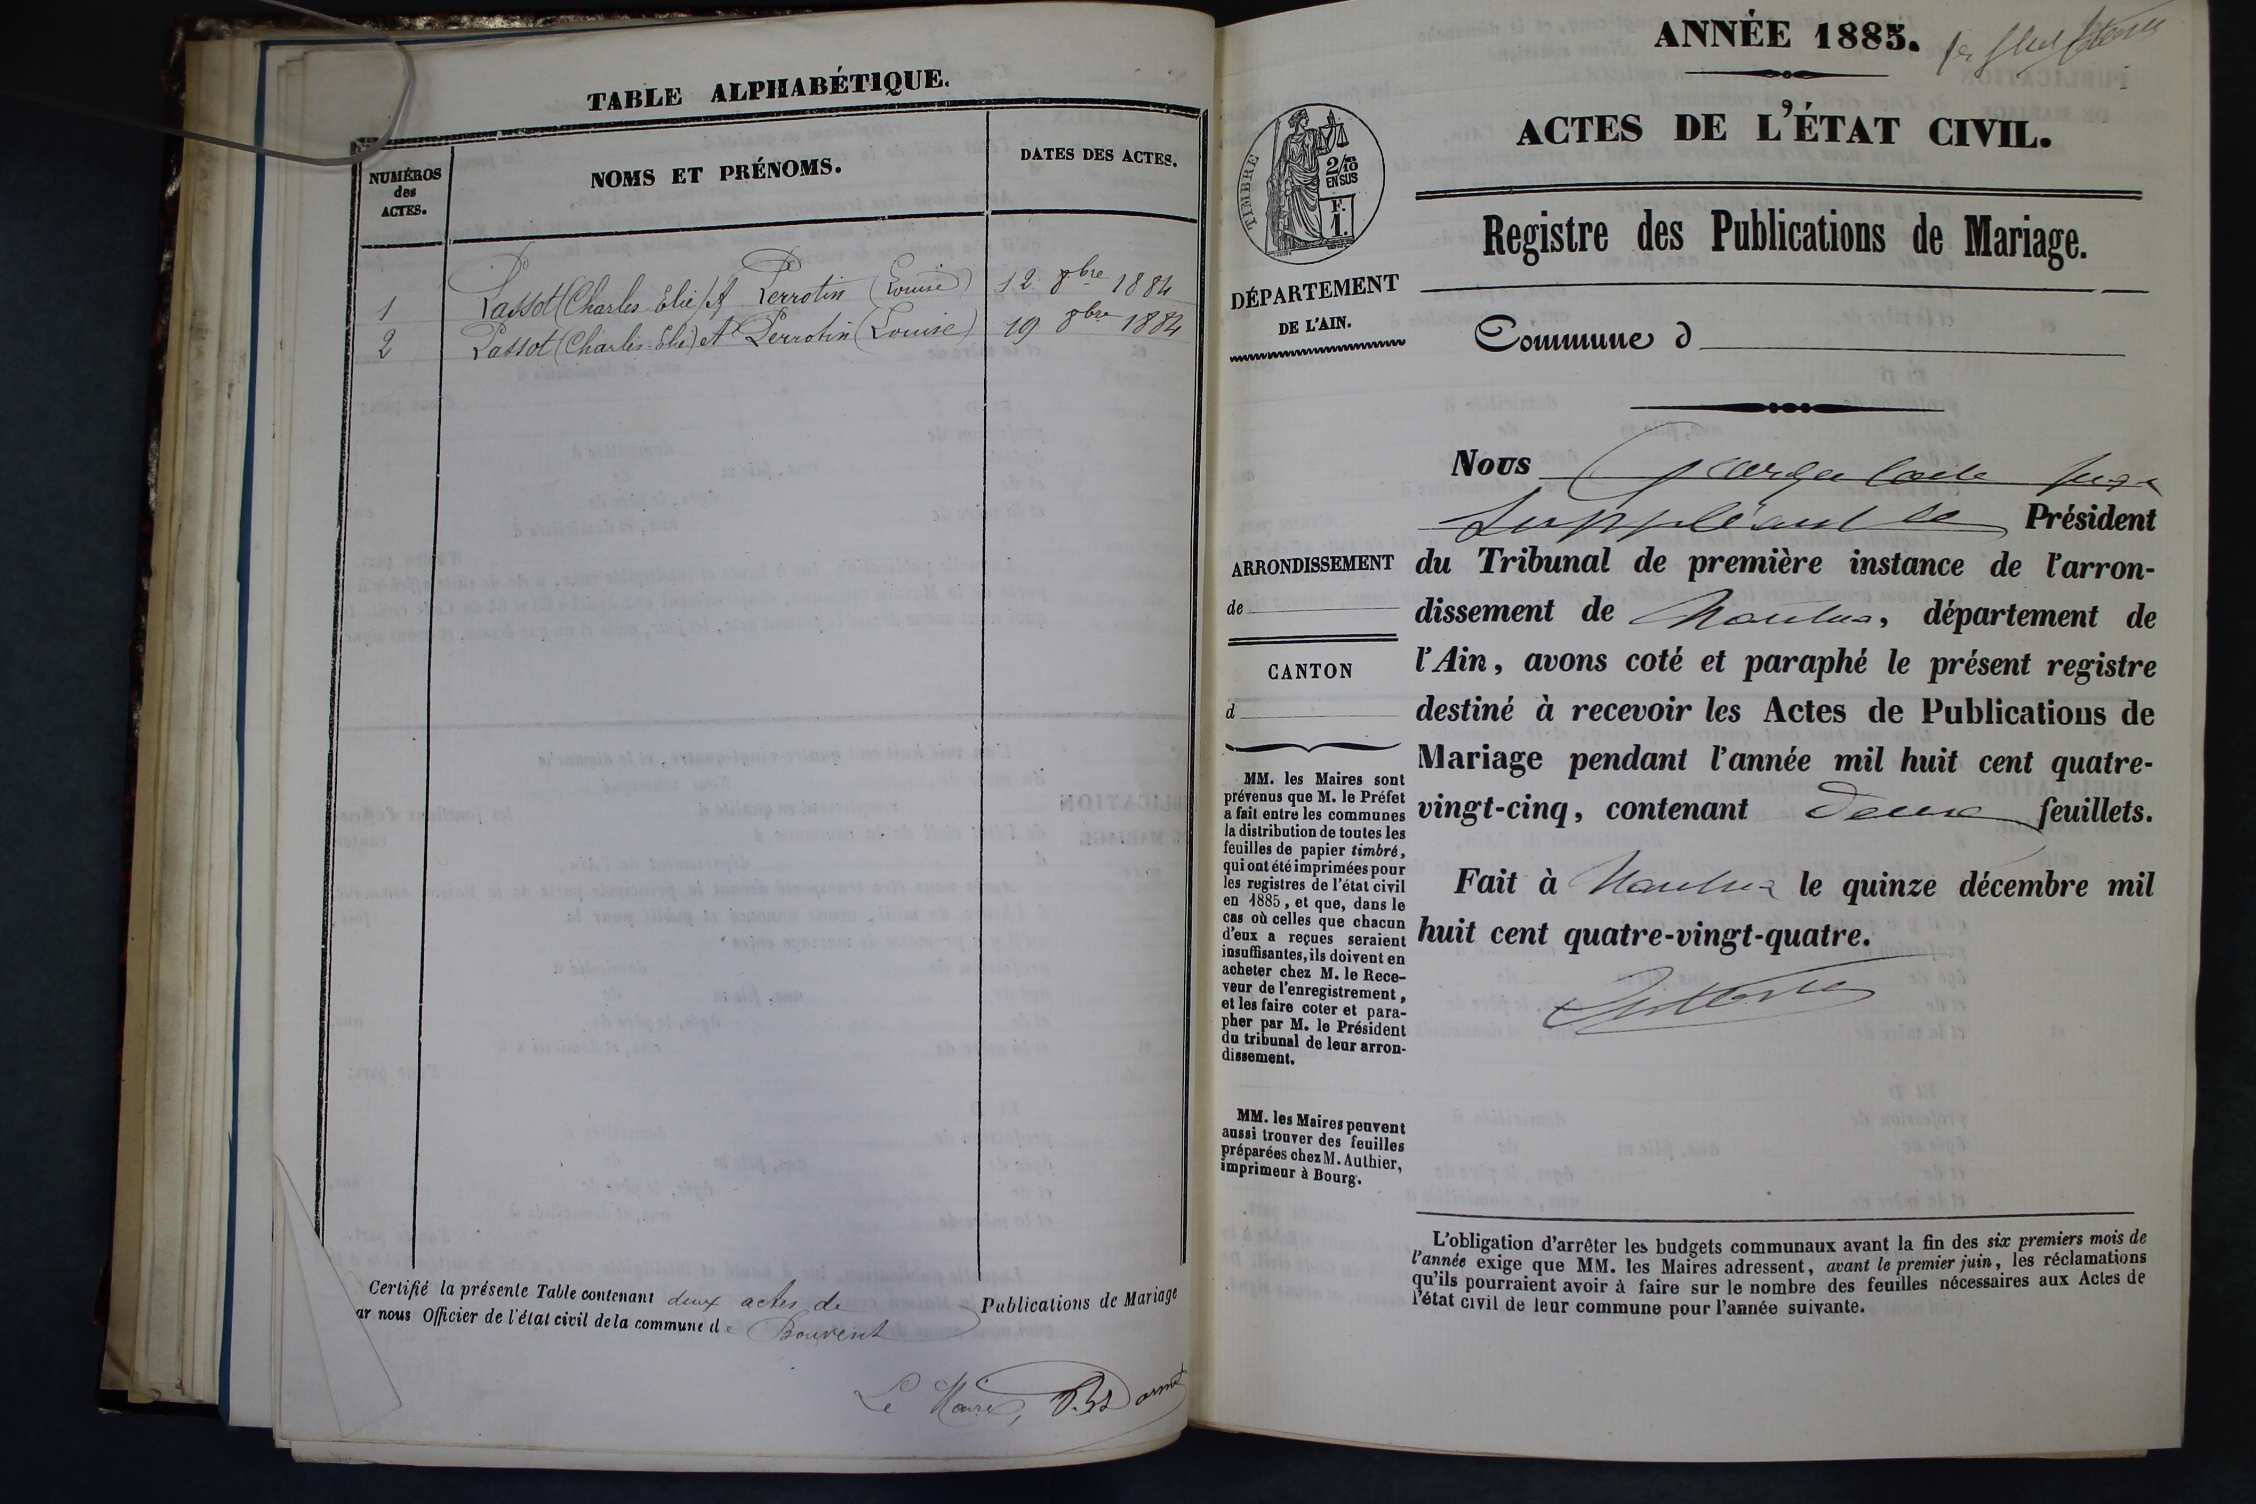 TABLE ALPHABÉTIQUE.
NUMÉROS
des
ACTES.
NOMS ET PRÉNOMS.
DATES DES ACTES.
1 Passot (Charles Elie) et Perrotin (Louise) 12 8bre 1884
2 Passot (Charles-Elie) et Perrotin (Louise) 19 8bre 1884
Certifié la présente Table contenant deux actes de Publications de Mariage
ar nous Officier de l'état civil de la commune de Bouvent
Le Maire,
ANNÉE 1885.
ACTES DE L'ÉTAT CIVIL.
TIMBRE
2/10
EN SUS
F.
1.
Registre des Publications de Mariage.
DÉPARTEMENT
DE L'AIN.
Commune d
Nous
Suppléant Président
ARRONDISSEMENT
de
CANTON
d
du Tribunal de première instance de l'arron-
dissement de Nantua, département de
l'Ain, avons coté et paraphé le présent registre
destiné à recevoir les Actes de Publications de
Mariage pendant l'année mil huit cent quatre-
vingt-cinq, contenant deux feuillets.
Fait à Nantua le quinze décembre mil
huit cent quatre-vingt-quatre.
MM. les Maires sont
prévenus que M. le Préfet
a fait entre les communes
la distribution de toutes les
feuilles de papier timbré,
qui ont été imprimées pour
les registres de l'état civil
en 1885, et que, dans le
cas où celles que chacun
d'eux a reçues seraient
insuffisantes, ils doivent en
acheter chez M. le Rece-
veur de l'enregistrement,
et les faire coter et para-
pher par M. le Président
du tribunal de leur arron-
dissement.
MM. les Maires peuvent
aussi trouver des feuilles
préparées chez M. Authier,
imprimeur à Bourg.
L'obligation d'arrêter les budgets communaux avant la fin des six premiers mois de
l'année exige que MM. les Maires adressent, avant le premier juin, les réclamations
qu'ils pourraient avoir à faire sur le nombre des feuilles nécessaires aux Actes de
l'état civil de leur commune pour l'année suivante.